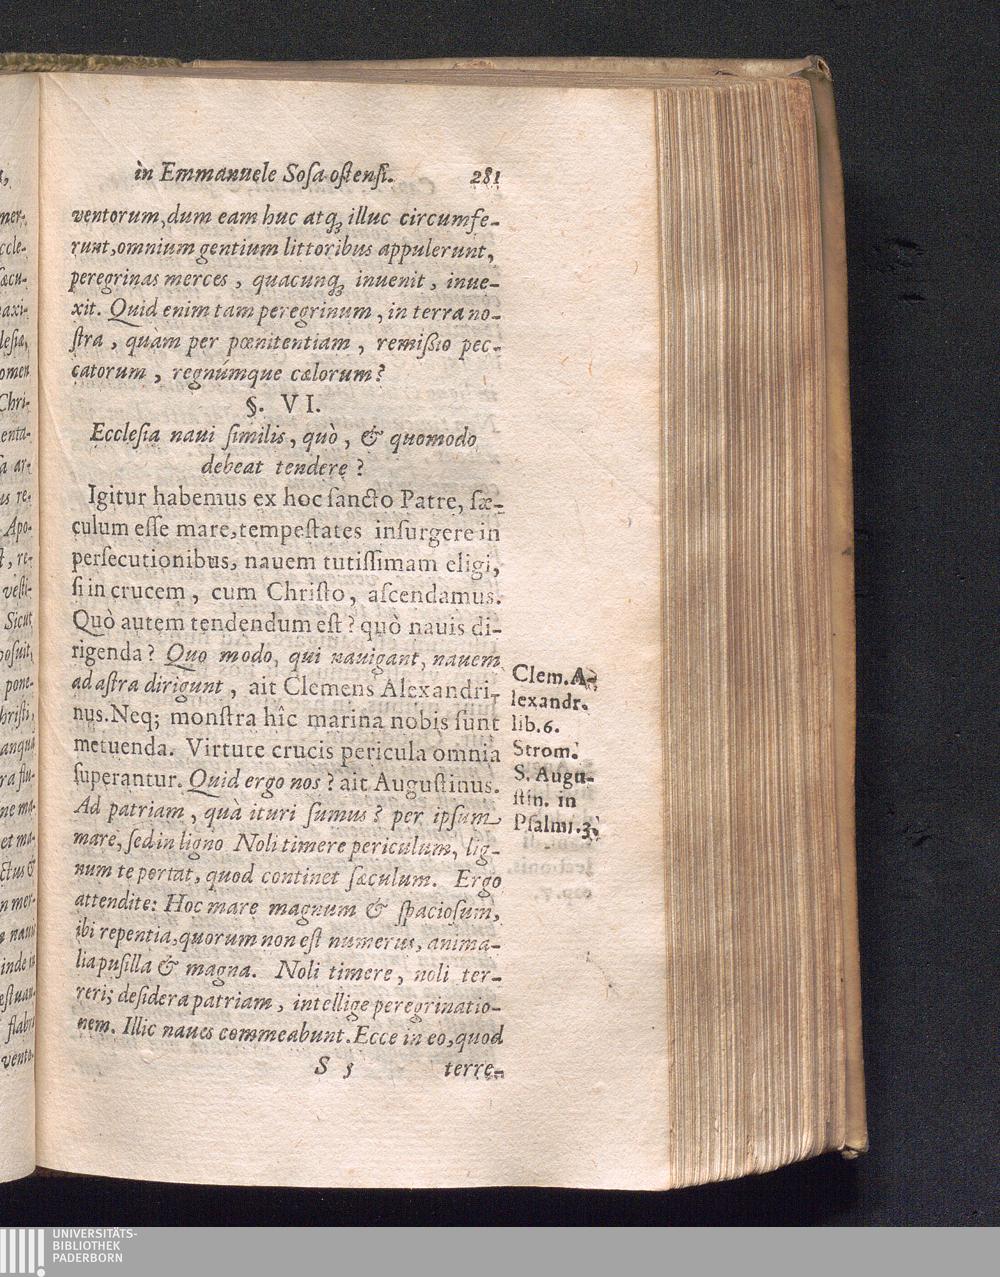 in Emmanuele Sosa ostensi. 281
ventorum, dum eam huc atq; illuc circumfe-
runt, omnium gentium littoribus appulerunt,
peregrinas merces, quacunq; inuenit, inue-
xit. Quid enim tam peregrinum, in terra no-
stra, quàm per pœnitentiam, remißio pec-
catorum, regnúmque cælorum?
§. VI.
Ecclesia naui similis, quò, & quomodo
debeat tendere?
Igitur habemus ex hoc sancto Patre, sæ-
culum esse mare, tempestates insurgere in
persecutionibus, nauem tutissimam eligi,
si in crucem, cum Christo, ascendamus.
Quò autem tendendum est? quò nauis di-
rigenda? Quo modo, qui nauigant, nauem
ad astra dirigunt, ait Clemens Alexandri-
nus. Neq; monstra hîc marina nobis sunt
metuenda. Virtute crucis pericula omnia
superantur. Quid ergo nos? ait Augustinus.
Ad patriam, quà ituri sumus? per ipsum
mare, sed in ligno Noli timere periculum, lig-
num te portat, quod continet sæculum. Ergo
attendite: Hoc mare magnum & spaciosum,
ibi repentia, quorum non est numerus, anima-
lia pusilla & magna. Noli timere, noli ter-
reri; desidera patriam, intellige peregrinatio-
nem. Illic naues commeabunt. Ecce in eo, quod
S 5 terre-
Clem. A-
lexandr.
lib. 6.
Strom.
S. Augu-
stin. in
Psalm. 3.
UNIVERSITÄTS-
BIBLIOTHEK
PADERBORN